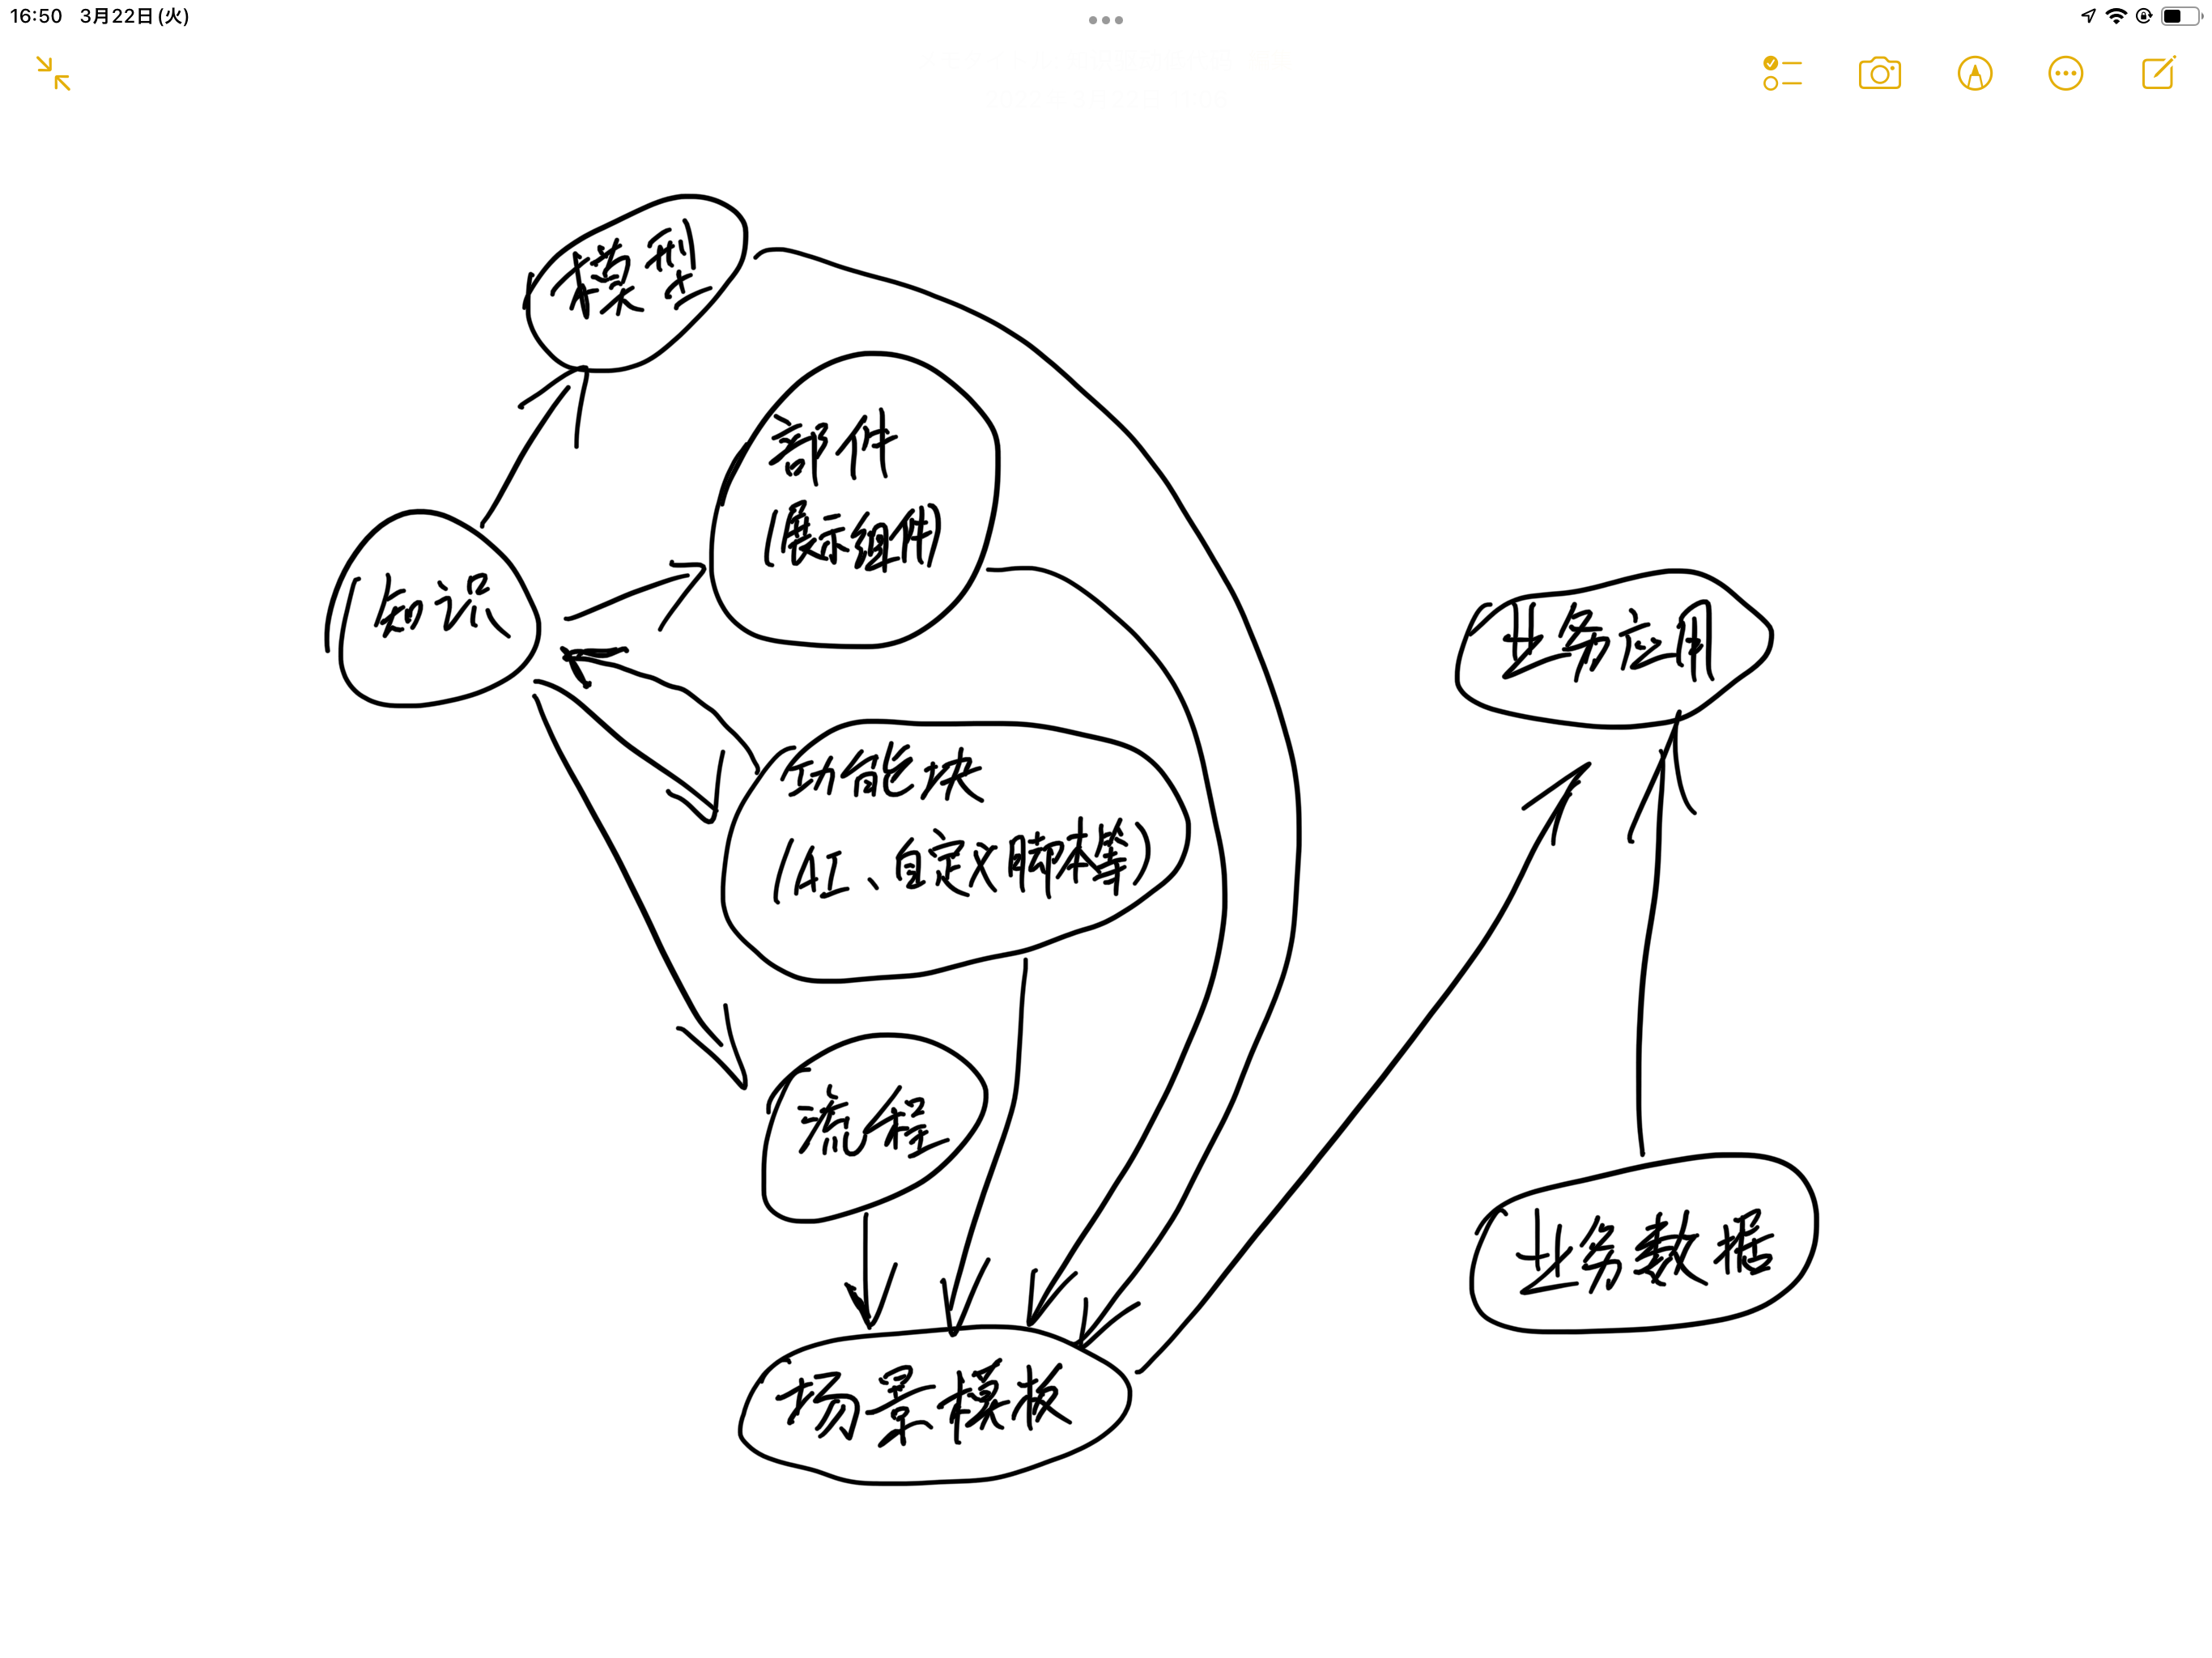 16:50 3月22日(火)
模型
部件
(展示组件)
知识
业务应用
功能块
(AI、自定义脚本等)
流程
业务数据
场景模板